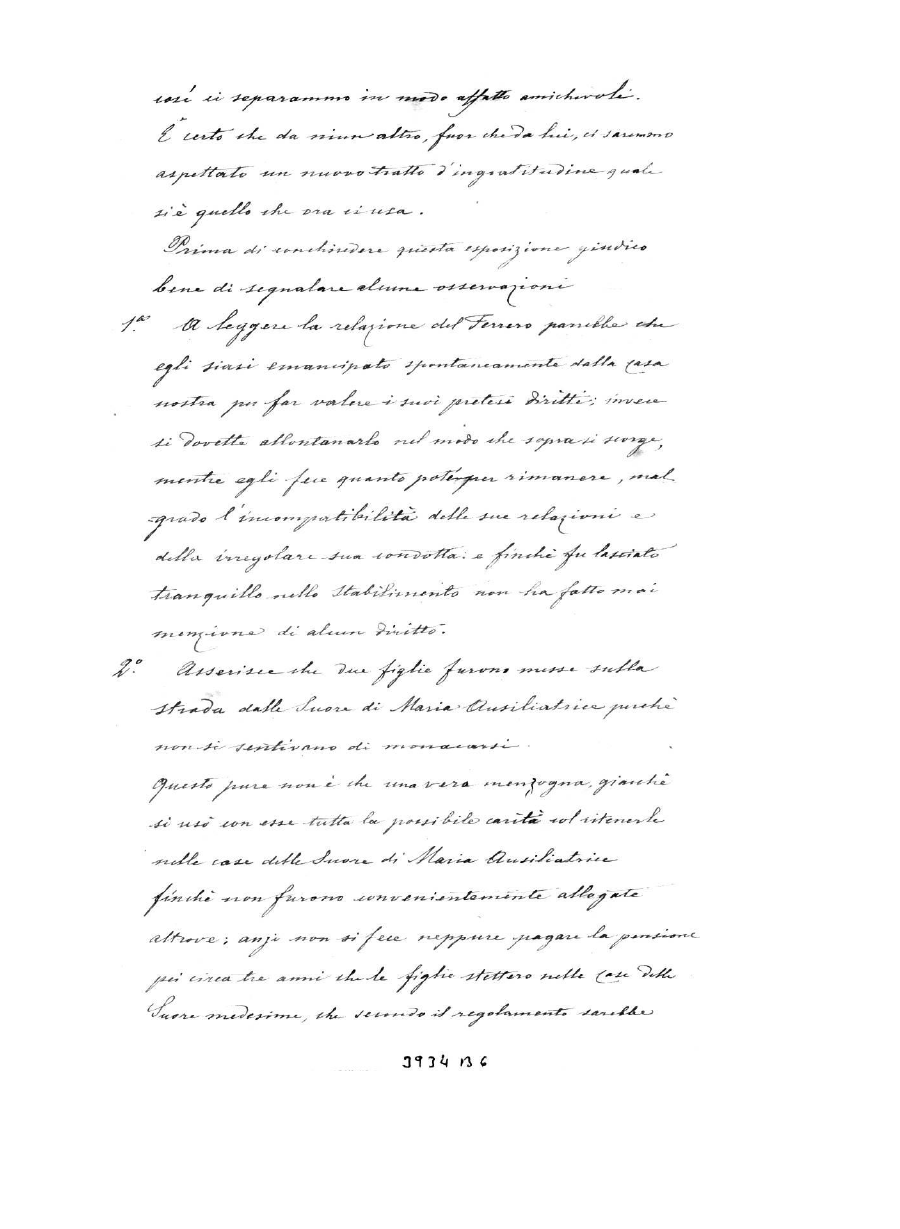 così ci separammo in modo affatto amichevole.
È certo che da niun altro, fuor che da lui, ci saremmo
aspettato un nuovo tratto d'ingratitudine quale
si è quello che ora ci usa.
Prima di conchiudere questa esposizione giudico
bene di segnalare alcune osservazioni
1ª. A leggere la relazione del Ferrero parrebbe che
egli siasi emancipato spontaneamente dalla casa
nostra per far valere i suoi pretesi diritti; invece
si dovette allontanarlo nel modo che sopra si scorge,
mentre egli fece quanto poté per rimanere, mal
=grado l'incompatibilità delle sue relazioni e
della irregolare sua condotta: e finchè fu lasciato
tranquillo nello Stabilimento non ha fatto mai
menzione di alcun diritto.
2º. Asserisce che due figlie furono messe sulla
strada dalle Suore di Maria Ausiliatrice perchè
non si sentivano di monacarsi.
Questo pure non è che una vera menzogna, giacchè
si usò con esse tutta la possibile carità col ritenerle
nelle case delle Suore di Maria Ausiliatrice
finchè non furono convenientemente allogate
altrove; anzi non si fece neppure pagare la pensione
pei circa tre anni che le figlie stettero nelle case delle
Suore medesime, che secondo il regolamento sarebbe
3934 B 6